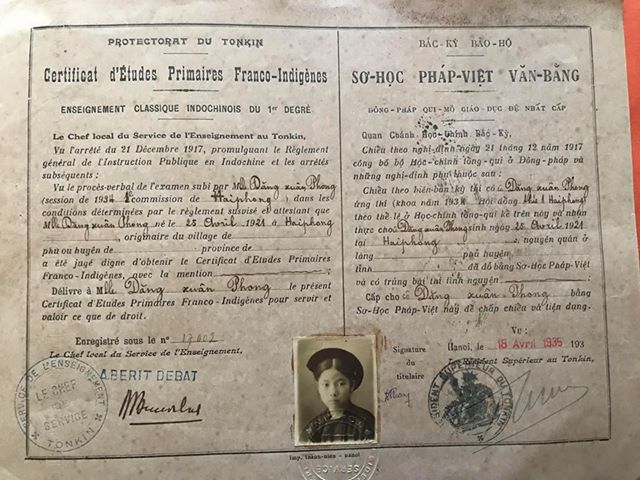 PROTECTORAT DU TONKIN
Certificat d'Études Primaires Franco-Indigènes
ENSEIGNEMENT CLASSIQUE INDOCHINOIS DU 1er DEGRÉ
Le Chef local du Service de l'Enseignement au Tonkin,
Vu l'arrêté du 21 Décembre 1917, promulguant le Règlement
général de l'Instruction Publique en Indochine et les arrêtés
subséquents :
Vu le procès-verbal de l'examen subi par Mlle Đặng xuân Phong
(session de 1934 commission de Haiphong) dans les
conditions déterminées par le règlement susvisé et attestant que
Mlle Đặng xuân Phong né le 25 Avril 1921 à Haiphong
, originaire du village de
phu ou huyện de province de
a été jugé digne d'obtenir le Certificat d'Etudes Primaires
Franco-Indigènes, avec la mention
Délivre à Mlle Đặng xuân Phong le présent
Certificat d'Etudes Primaires Franco-Indigènes pour servir et
valoir ce que de droit.
Enregistré sous le nº 17.002
Le Chef local du Service de l'Enseignement,
ABERIT DEBAT
SERVICE DE L'ENSEIGNEMENT
LE CHEF
DU
SERVICE
TONKIN
BẮC-KỲ BẢO-HỘ
SƠ-HỌC PHÁP-VIỆT VĂN-BẰNG
ĐÔNG-PHÁP QUI-MÔ GIÁO-DỤC ĐỆ NHẤT CẤP
Quan Chánh Học-Chính Bắc-Kỳ,
Chiểu theo nghị-định ngày 21 tháng 12 năm 1917
công bố bộ Học-chính tổng-qui ở Đông-pháp và
những nghị-định phụ thuộc sau :
Chiểu theo biên-bản kỳ thi cô Đặng xuân Phong
ứng thí (khoa năm 1934 Hội đồng Haiphong)
theo thể lệ ở Học-chính tổng-qui kể trên này và nhận
thực cho Đặng xuân Phong sinh ngày 25 Avril 1921
tại Haiphong nguyên quán ở
phủ huyện
tỉnh đã đỗ bằng Sơ-Học Pháp-Việt
và có trúng bài thi tình nguyện
Cấp cho cô Đặng xuân Phong bằng
Sơ-Học Pháp-Việt này để chấp chiếu và tiện dụng.
Vu :
Hanoi, le 18 Avril 1935 193
Le Résident Supérieur au Tonkin,
Signature
du
titulaire
Phong
RÉSIDENT SUPÉRIEUR DU TONKIN
Imp. THĂN-NIÊN - HANOI
SERVICE